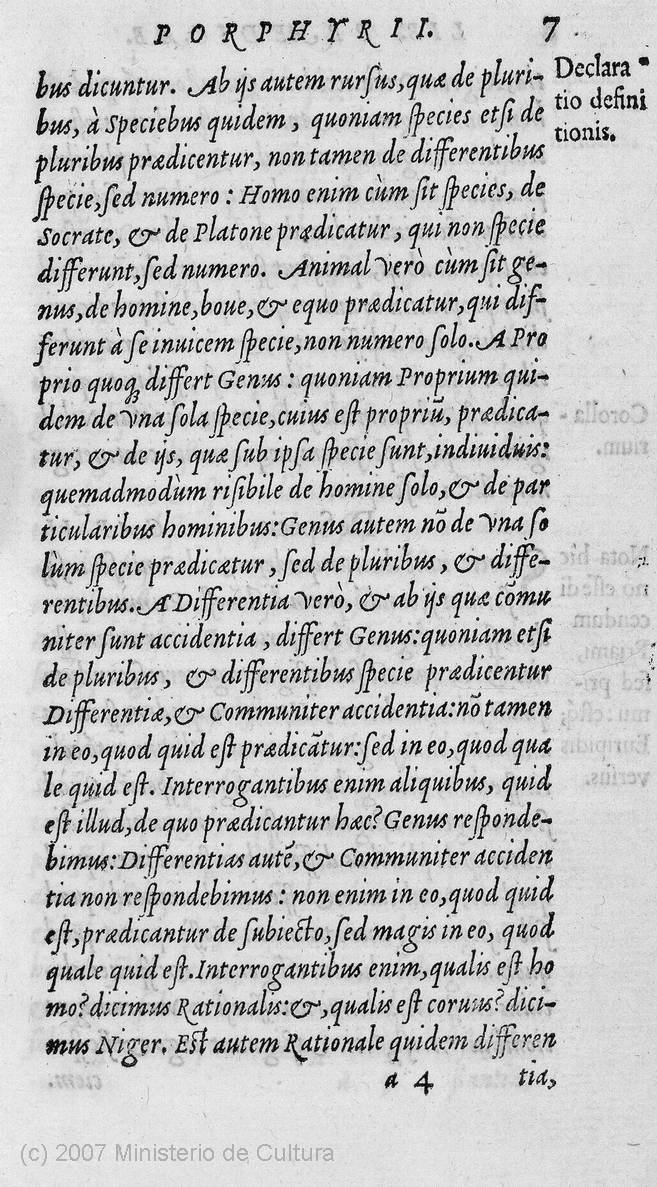 PORPHYRII. 7
Declara
tio defini
tionis.
bus dicuntur. Ab ijs autem rursus, quæ de pluri-
bus, à Speciebus quidem, quoniam species etsi de
pluribus prædicentur, non tamen de differentibus
specie, sed numero: Homo enim cùm sit species, de
Socrate, & de Platone prædicatur, qui non specie
differunt, sed numero. Animal verò cùm sit ge-
nus, de homine, boue, & equo prædicatur, qui dif-
ferunt à se inuicem specie, non numero solo. A Pro
prio quoq; differt Genus: quoniam Proprium qui-
dem de vna sola specie, cuius est propriũ, prædica-
tur, & de ijs, quæ sub ipsa specie sunt, indiuiduis:
quemadmodùm risibile de homine solo, & de par
ticularibus hominibus: Genus autem nõ de vna so
lùm specie prædicætur, sed de pluribus, & diffe-
rentibus. A Differentia verò, & ab ijs quæ cõmu
niter sunt accidentia, differt Genus: quoniam etsi
de pluribus, & differentibus specie prædicentur
Differentiæ, & Communiter accidentia: nõ tamen
in eo, quod quid est prædicãtur: sed in eo, quod qua
le quid est. Interrogantibus enim aliquibus, quid
est illud, de quo prædicantur hæc? Genus responde-
bimus: Differentias autẽ, & Communiter acciden
tia non respondebimus: non enim in eo, quod quid
est, prædicantur de subiecto, sed magis in eo, quod
quale quid est. Interrogantibus enim, qualis est ho
mo? dicimus Rationalis: &, qualis est coruus? dici-
mus Niger. Est autem Rationale quidem differen
a 4 tia,
(c) 2007 Ministerio de Cultura